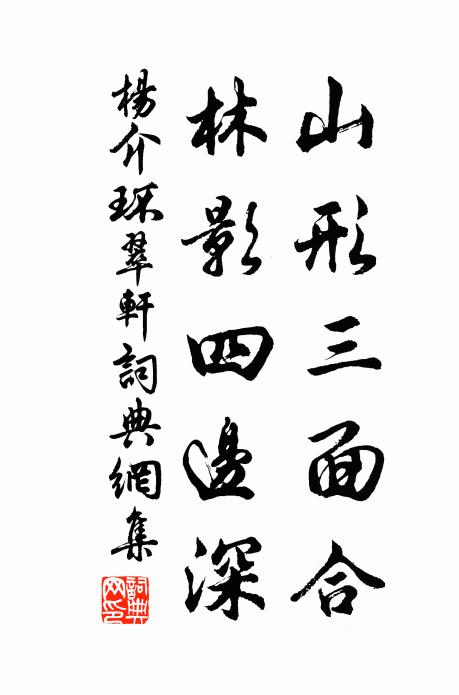 山形三面合
林影四邊深
楊介琛翠軒詞典網集
詞典
网印